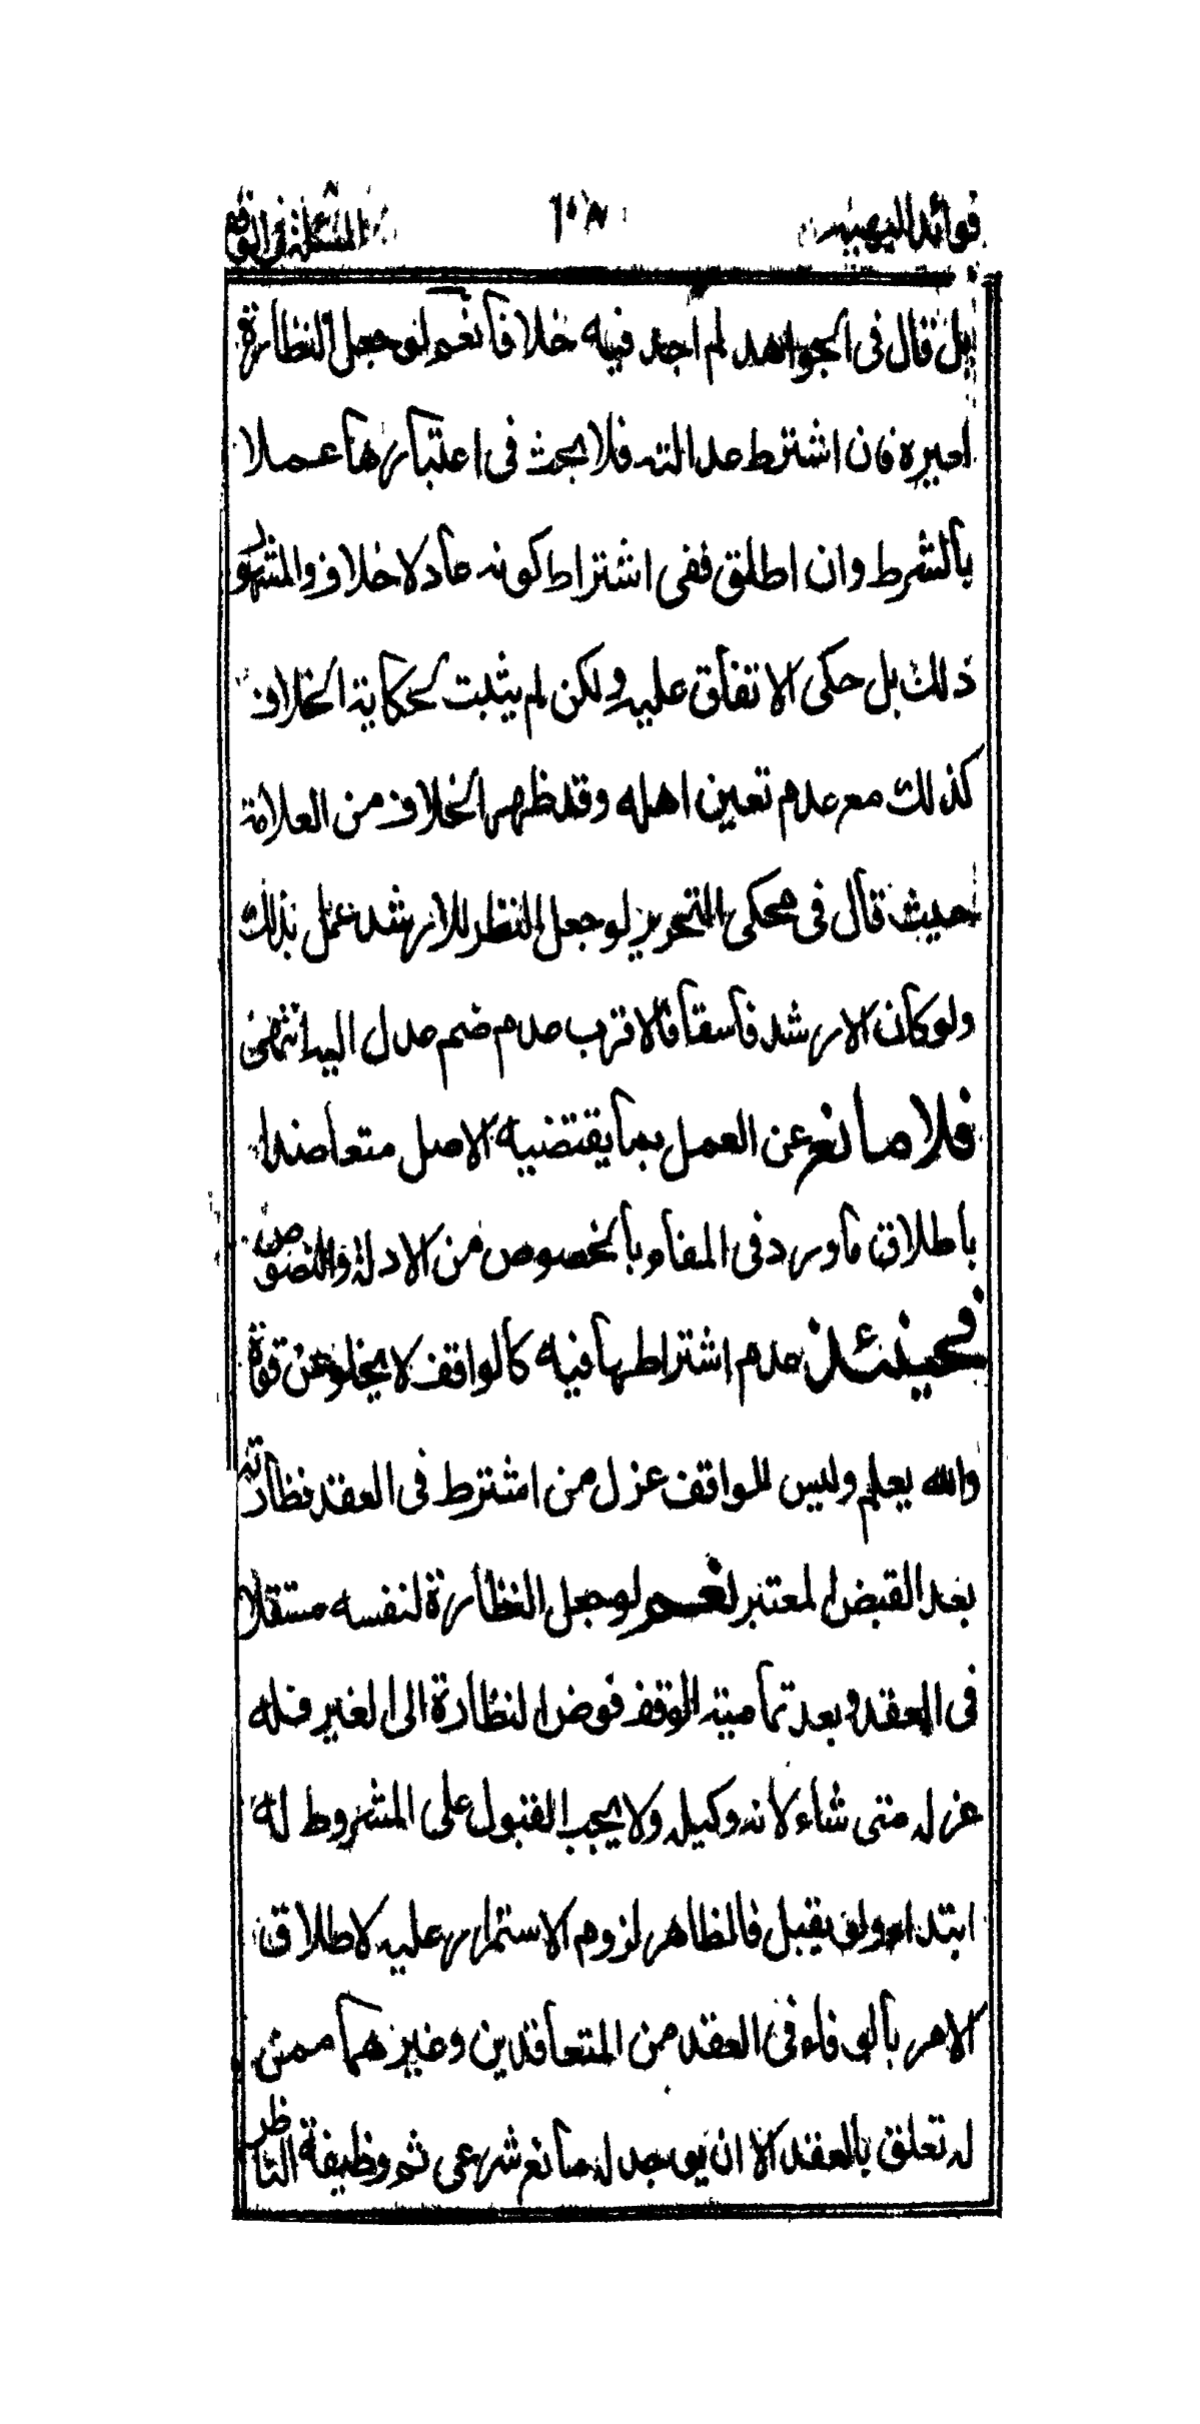 فوائد البهية ١٠٨ المشكلة فى الوقف
بل قال فى الجواهر لم اجد فيه خلافا نعم لو جعل النظارة
لغيره فان اشترط عدالته فلا بحث فى اعتبارها عملا
بالشرط وان اطلق ففى اشتراط كونه عادلا خلاف والمشهور
ذلك بل حكى الاتفاق عليه ولكن لم يثبت لحكاية الخلاف
كذلك مع عدم تعين اهله وقد ظهر الخلاف من العلامة
حيث قال فى محكى التحرير لو جعل النظر للارشد عمل بذلك
ولو كان الارشد فاسقا فالاقرب عدم ضم عدل اليه انتهى
فلا مانع عن العمل بما يقتضيه الاصل متعاضدا
باطلاق ما ورد فى المقام بالخصوص من الادلة والنصوص
فحينئذ عدم اشتراطها فيه كالواقف لا يخلو عن قوة
والله يعلم وليس للواقف عزل من اشترط فى العقد نظارته
بعد القبض المعتبر نعم لو جعل النظارة لنفسه مستقلا
فى العقد وبعد تمامية الوقف فوض النظارة الى الغير فله
عزله متى شاء لانه وكيله ولا يجب القبول على المشروط له
ابتداء ولو يقبل فالظاهر لزوم الاستمرار عليه لاطلاق
الامر بالوفاء فى العقد من المتعاقدين وغيرهما ممن
له تعلق بالعقد الا ان يوجد له مانع شرعى ثم وظيفة الناظر